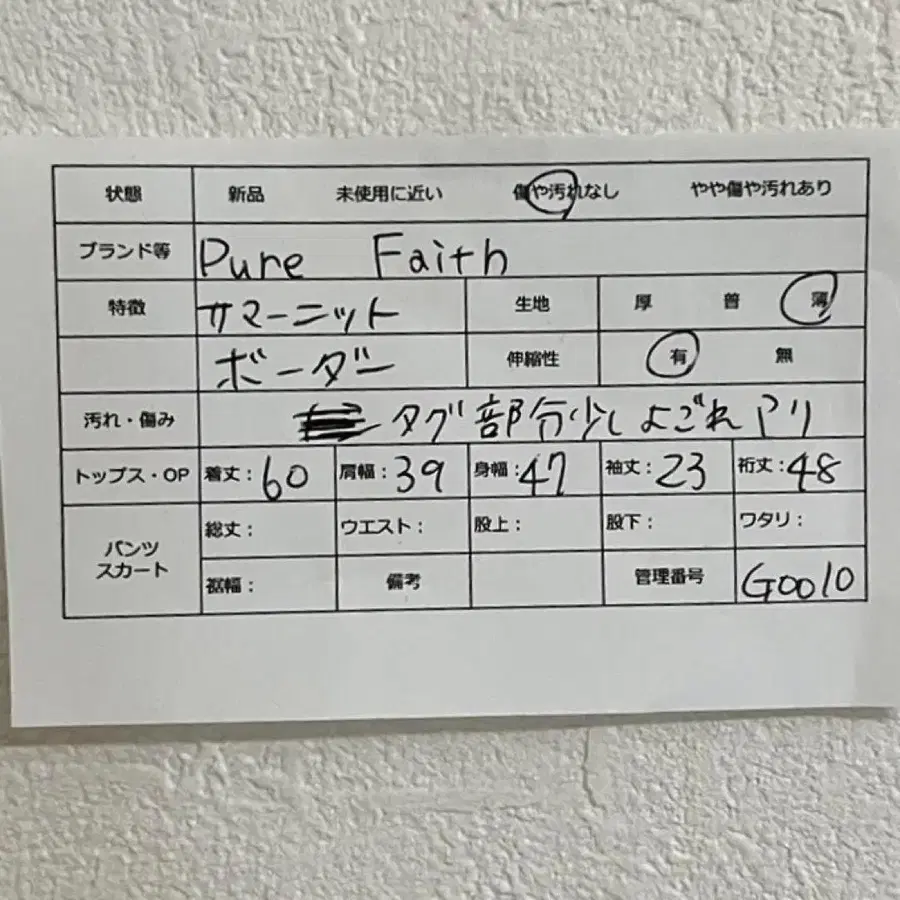 状態 新品 未使用に近い 傷や汚れなし やや傷や汚れあり
ブランド等 Pure Faith
特徴 サマーニット 生地 厚 普 薄
ボーダー 伸縮性 有 無
汚れ・傷み タグ部分少しよごれアリ
トップス・OP 着丈:60 肩幅:39 身幅:47 袖丈:23 裄丈:48
パンツ スカート 総丈: ウエスト: 股上: 股下: ワタリ:
裾幅: 備考 管理番号 G0010